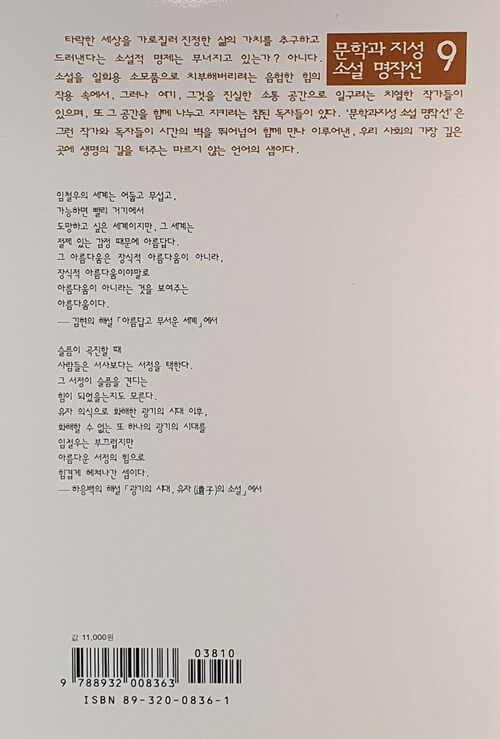 타락한 세상을 가로질러 진정한 삶의 가치를 추구하고
드러낸다는 소설적 명제는 무너지고 있는가? 아니다.
소설을 일회용 소모품으로 치부해버리려는 음험한 힘의
작용 속에서, 그러나 여기, 그것을 진실한 소통 공간으로 일구려는 치열한 작가들이
있으며, 또 그 공간을 함께 나누고 지키려는 참된 독자들이 있다. '문학과지성 소설 명작선'은
그런 작가와 독자들이 시간의 벽을 뛰어넘어 함께 만나 이루어낸, 우리 사회의 가장 깊은
곳에 생명의 길을 터주는 마르지 않는 언어의 샘이다.
문학과 지성
소설 명작선
9
임철우의 세계는 어둡고 무섭고,
가능하면 빨리 거기에서
도망하고 싶은 세계이지만, 그 세계는
절제 있는 감정 때문에 아름답다.
그 아름다움은 장식적 아름다움이 아니라,
장식적 아름다움이야말로
아름다움이 아니라는 것을 보여주는
아름다움이다.
— 김현의 해설 「아름답고 무서운 세계」에서
슬픔이 극진할 때
사람들은 서사보다는 서정을 택한다.
그 서정이 슬픔을 견디는
힘이 되었을는지도 모른다.
유자 의식으로 화해한 광기의 시대 이후,
화해할 수 없는 또 하나의 광기의 시대를
임철우는 부끄럽지만
아름다운 서정의 힘으로
힘겹게 헤쳐나간 셈이다.
— 하응백의 해설 「광기의 시대, 유자(遺子)의 소설」에서
값 11,000원
03810
9 788932 008363
ISBN 89-320-0836-1